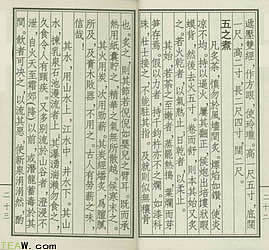 遞壓雙經,作方眼,使玲瓏。高一尺五寸,底闊
一尺,高二寸,長二尺四寸,闊二尺。
五之煮
凡炙茶,慎勿於風燼間炙,熛焰如鑽,使炎
涼不均。持以逼火,屢其翻正,候炮出培塿狀蝦
蟆背,然後去火五寸,卷而舒,則本其始又炙
之。若火乾者,以氣熟止;日乾者,以柔止。
其始,若茶之至嫩者,蒸罷熱搗,葉爛而芽
筍存焉。假以力者,持千鈞杵亦不之爛,如漆科
珠,壯士接之,不能駐其指。及就,則似無穰骨
也。炙之,則其節若倪倪如嬰兒之臂耳。既而承
熱用紙囊貯之,精華之氣無所散越,候寒末之。
其火用炭,次用勁薪。其炭經燔炙,為膻膩
所及,及膏木敗器,不用之。古人有勞薪之味,
信哉!
其水,用山水上,江水中,井水下。其山
水,揀乳泉、石池慢流者上;其瀑湧湍漱,勿食之。
久食令人有頸疾。又多別流於山谷者,澄浸不
洩,自火天至霜郊(降)以前,或潛龍蓄毒於其
間,飲者可決之,以流其惡,使新泉涓涓然,酌
二十二
二十三
TEAW.com